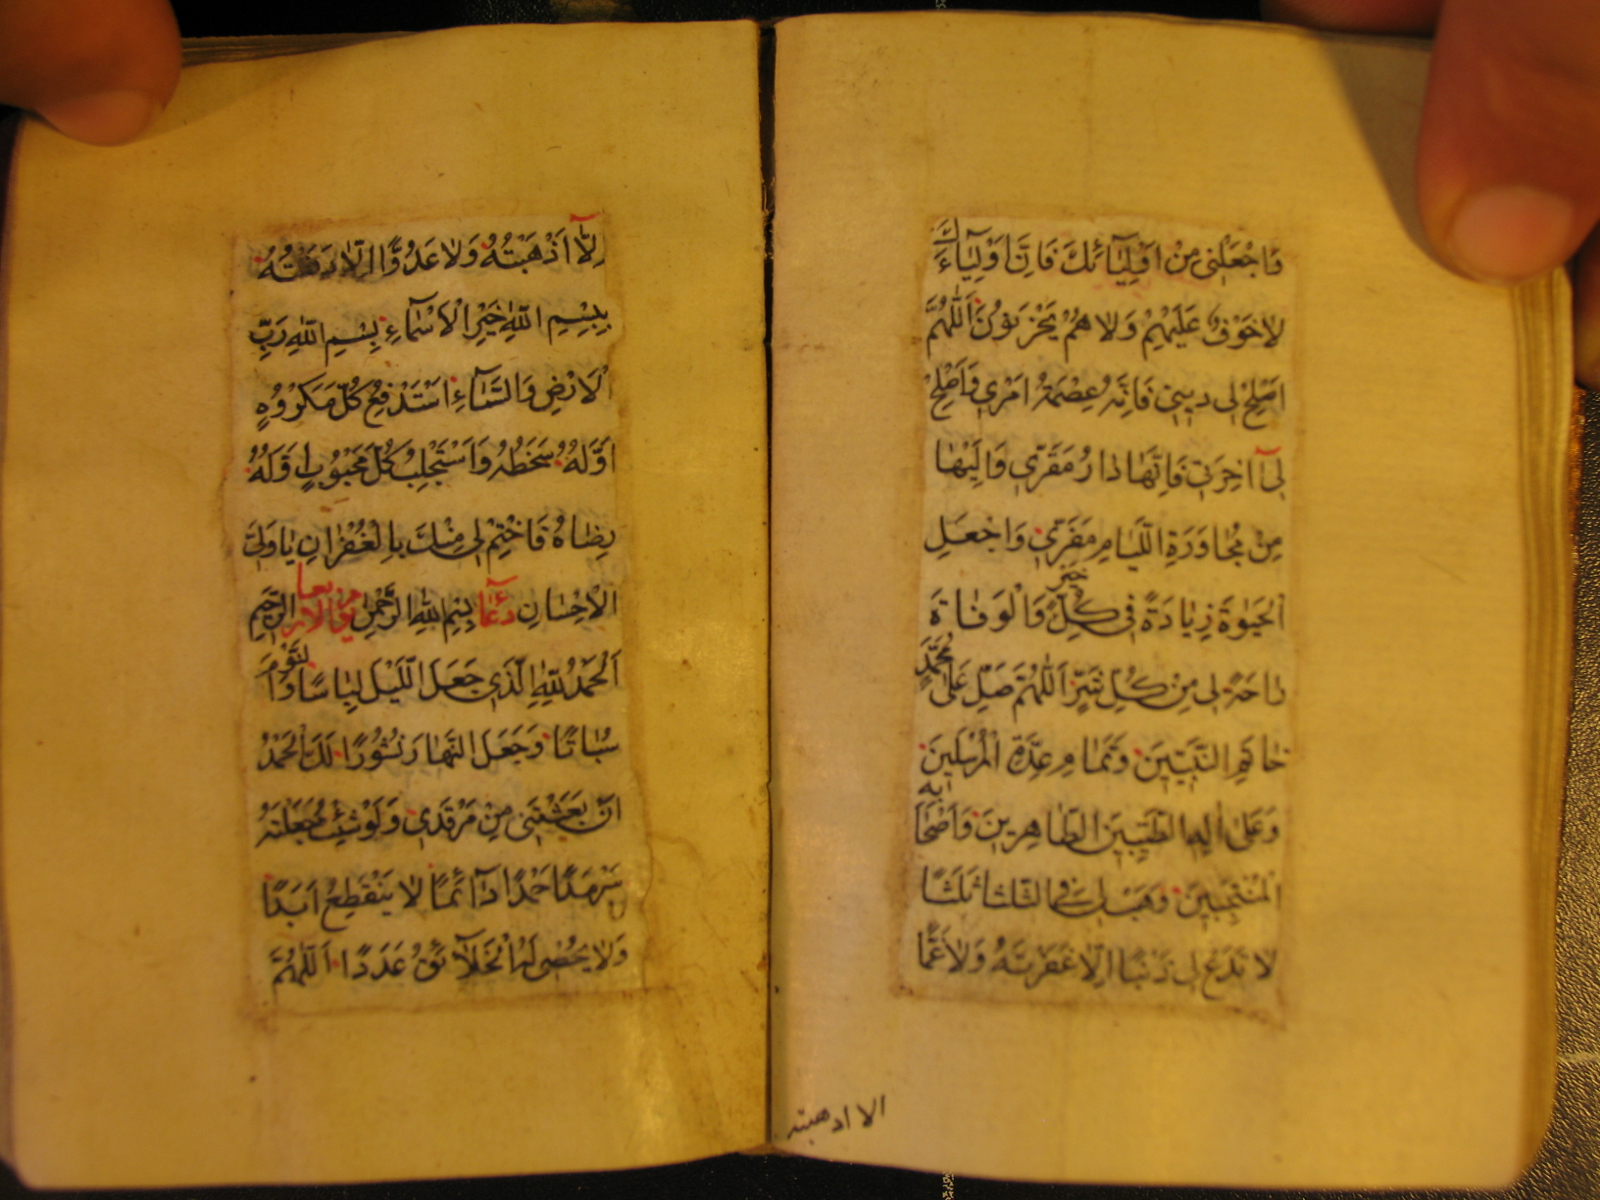 وَاجْعَلْنِي مِنْ اَوْلِيَآئِكَ فَاِنَّ اَوْلِيَاءَكَ
لَاخَوْفٌ عَلَيْهِمْ وَلَا هُمْ يَحْزَنُونَ اَللّٰهُمَّ
اَصْلِحْ لِى دِينِى فَاِنَّهُ عِصْمَةُ اَمْرِي وَاَصْلِحْ
لِىٓ آخِرَتِى فَاِنَّهَا دَارُ مَقَرِّي وَاِلَيْهَا
مِنْ مُجَاوَرَةِ اللِّئَامِ مَفَرِّي وَاجْعَلِ
الْحَيٰوةَ زِيَادَةً فِى كُلِّ خَيْرٍ وَالْوَفَاةَ
رَاحَةً لِى مِنْ كُلِّ شَرٍّ اَللّٰهُمَّ صَلِّ عَلىٰ مُحَمَّدٍ
خَاتَمِ النَّبِيّٖينَ وَتَمَامِ عِدَّةِ الْمُرْسَلِينَ
وَعَلىٰ اٰلِهِ الطَّيِّبِينَ الطَّاهِرِينَ وَاَصْحَابِهِ
الْمُنْتَجَبِينَ وَهَبْ لِى فِى الثَّلَثَا ثَلَثًا
لَا تَدَعْ لِى ذَنْبًا اِلَّا غَفَرْتَهُ وَلَا غَمًّا
الا اذهبته
اِلَّآ اَذْهَبْتَهُ وَلَا عَدُوًّا اِلَّا دَفَعْتَهُ
بِبِسْمِ اللّٰهِ خَيْرِ الْاَسْمَآءِ بِسْمِ اللّٰهِ رَبِّ
الْاَرْضِ وَالسَّمَآءِ اَسْتَدْفِعُ كُلَّ مَكْرُوهٍ
اَوَّلُهُ سَخَطُهُ وَاَسْتَجْلِبُ كُلَّ مَحْبُوبٍ اَوَّلُهُ
رِضَاهُ فَاخْتِمْ لِى مِنْكَ بِالْغُفْرَانِ يَا وَلِىَّ
الْاِحْسَانِ دُعَآء يوم الاربعا بِسْمِ اللّٰهِ الرَّحْمٰنِ الرَّحِيمِ
اَلْحَمْدُ لِلّٰهِ الَّذِى جَعَلَ اللَّيْلَ لِبَاسًا وَالنَّوْمَ
سُبَاتًا وَجَعَلَ النَّهَارَ نُشُورًا لَكَ الْحَمْدُ
اَنْ بَعَثْتَنِى مِنْ مَرْقَدِي وَلَوْ شِئْتَ جَعَلْتَهُ
سَرْمَدًا حَمْدًا دَآئِمًا لَا يَنْقَطِعُ اَبَدًا
وَلَا يُحْصِى لَهُ الْخَلَآئِقُ عَدَدًا اَللّٰهُمَّ